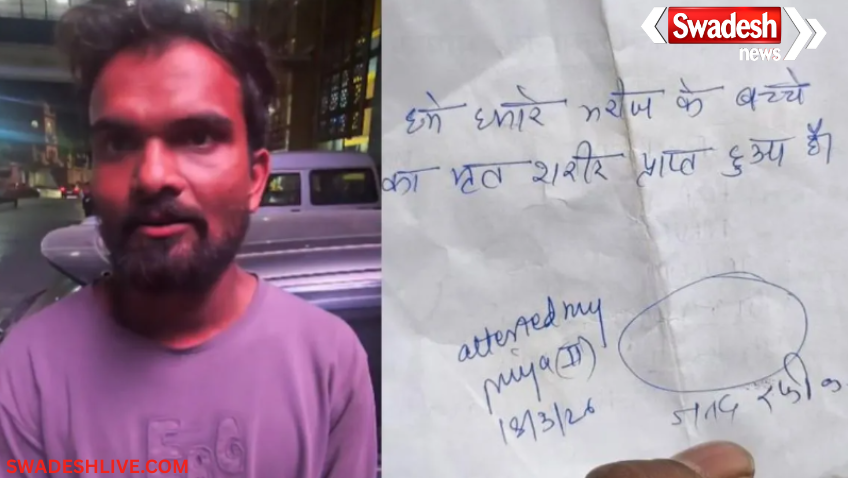 Swadesh
news
हमे हमारे मरीज के बच्चे
का मृत शरीर प्राप्त हुआ है।
attested my
Priya (II)
18/3/26
रफीक
EGO
SWADESHLIVE.COM